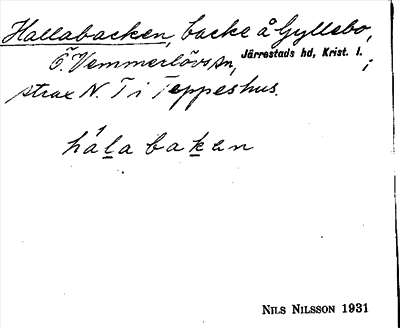 Hallabacken, backe å Gyllebo,
Ö. Vemmerlövs sn, Järrestads hd, Krist. l.;
strax N. T i Teppeshus.
håla baken
NILS NILSSON 1931